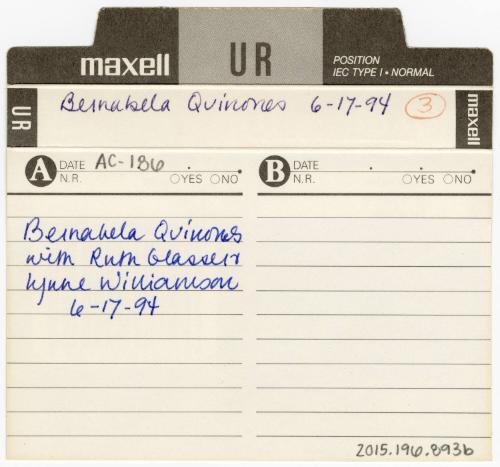 maxell UR POSITION
IEC TYPE I • NORMAL
UR Bernabela Quinones 6-17-94 3 maxell
A DATE AC-186
N.R. YES NO
B DATE
N.R. YES NO
Bernabela Quinones
with Ruth Glasser
Lynne Williamson
6-17-94
2015.196.893b